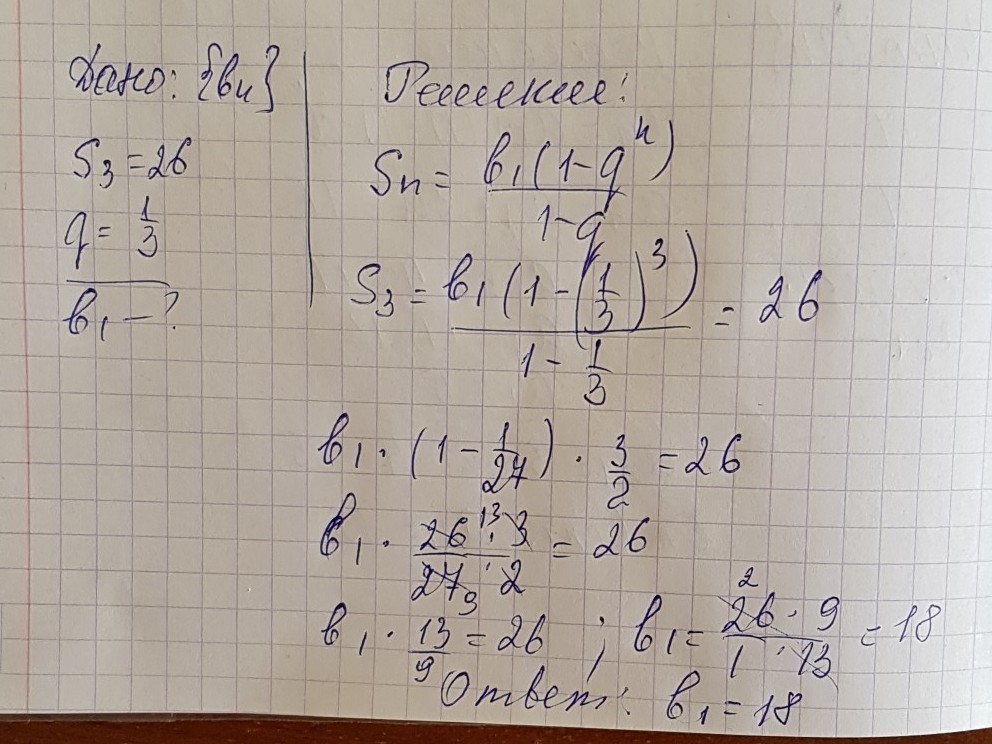 Дано: {bn}
S₃ = 26
q = 1/3
b₁ - ?
Решение:
Sn = b₁(1-qⁿ) / 1-q
S₃ = b₁(1-(1/3)³) / 1 - 1/3 = 26
b₁ · (1 - 1/27) · 3/2 = 26
b₁ · 26 13 · 3 / 27 9 · 2 = 26
b₁ · 13/9 = 26 ; b₁ = 26 2 · 9 / 1 · 13 = 18
Ответ: b₁ = 18